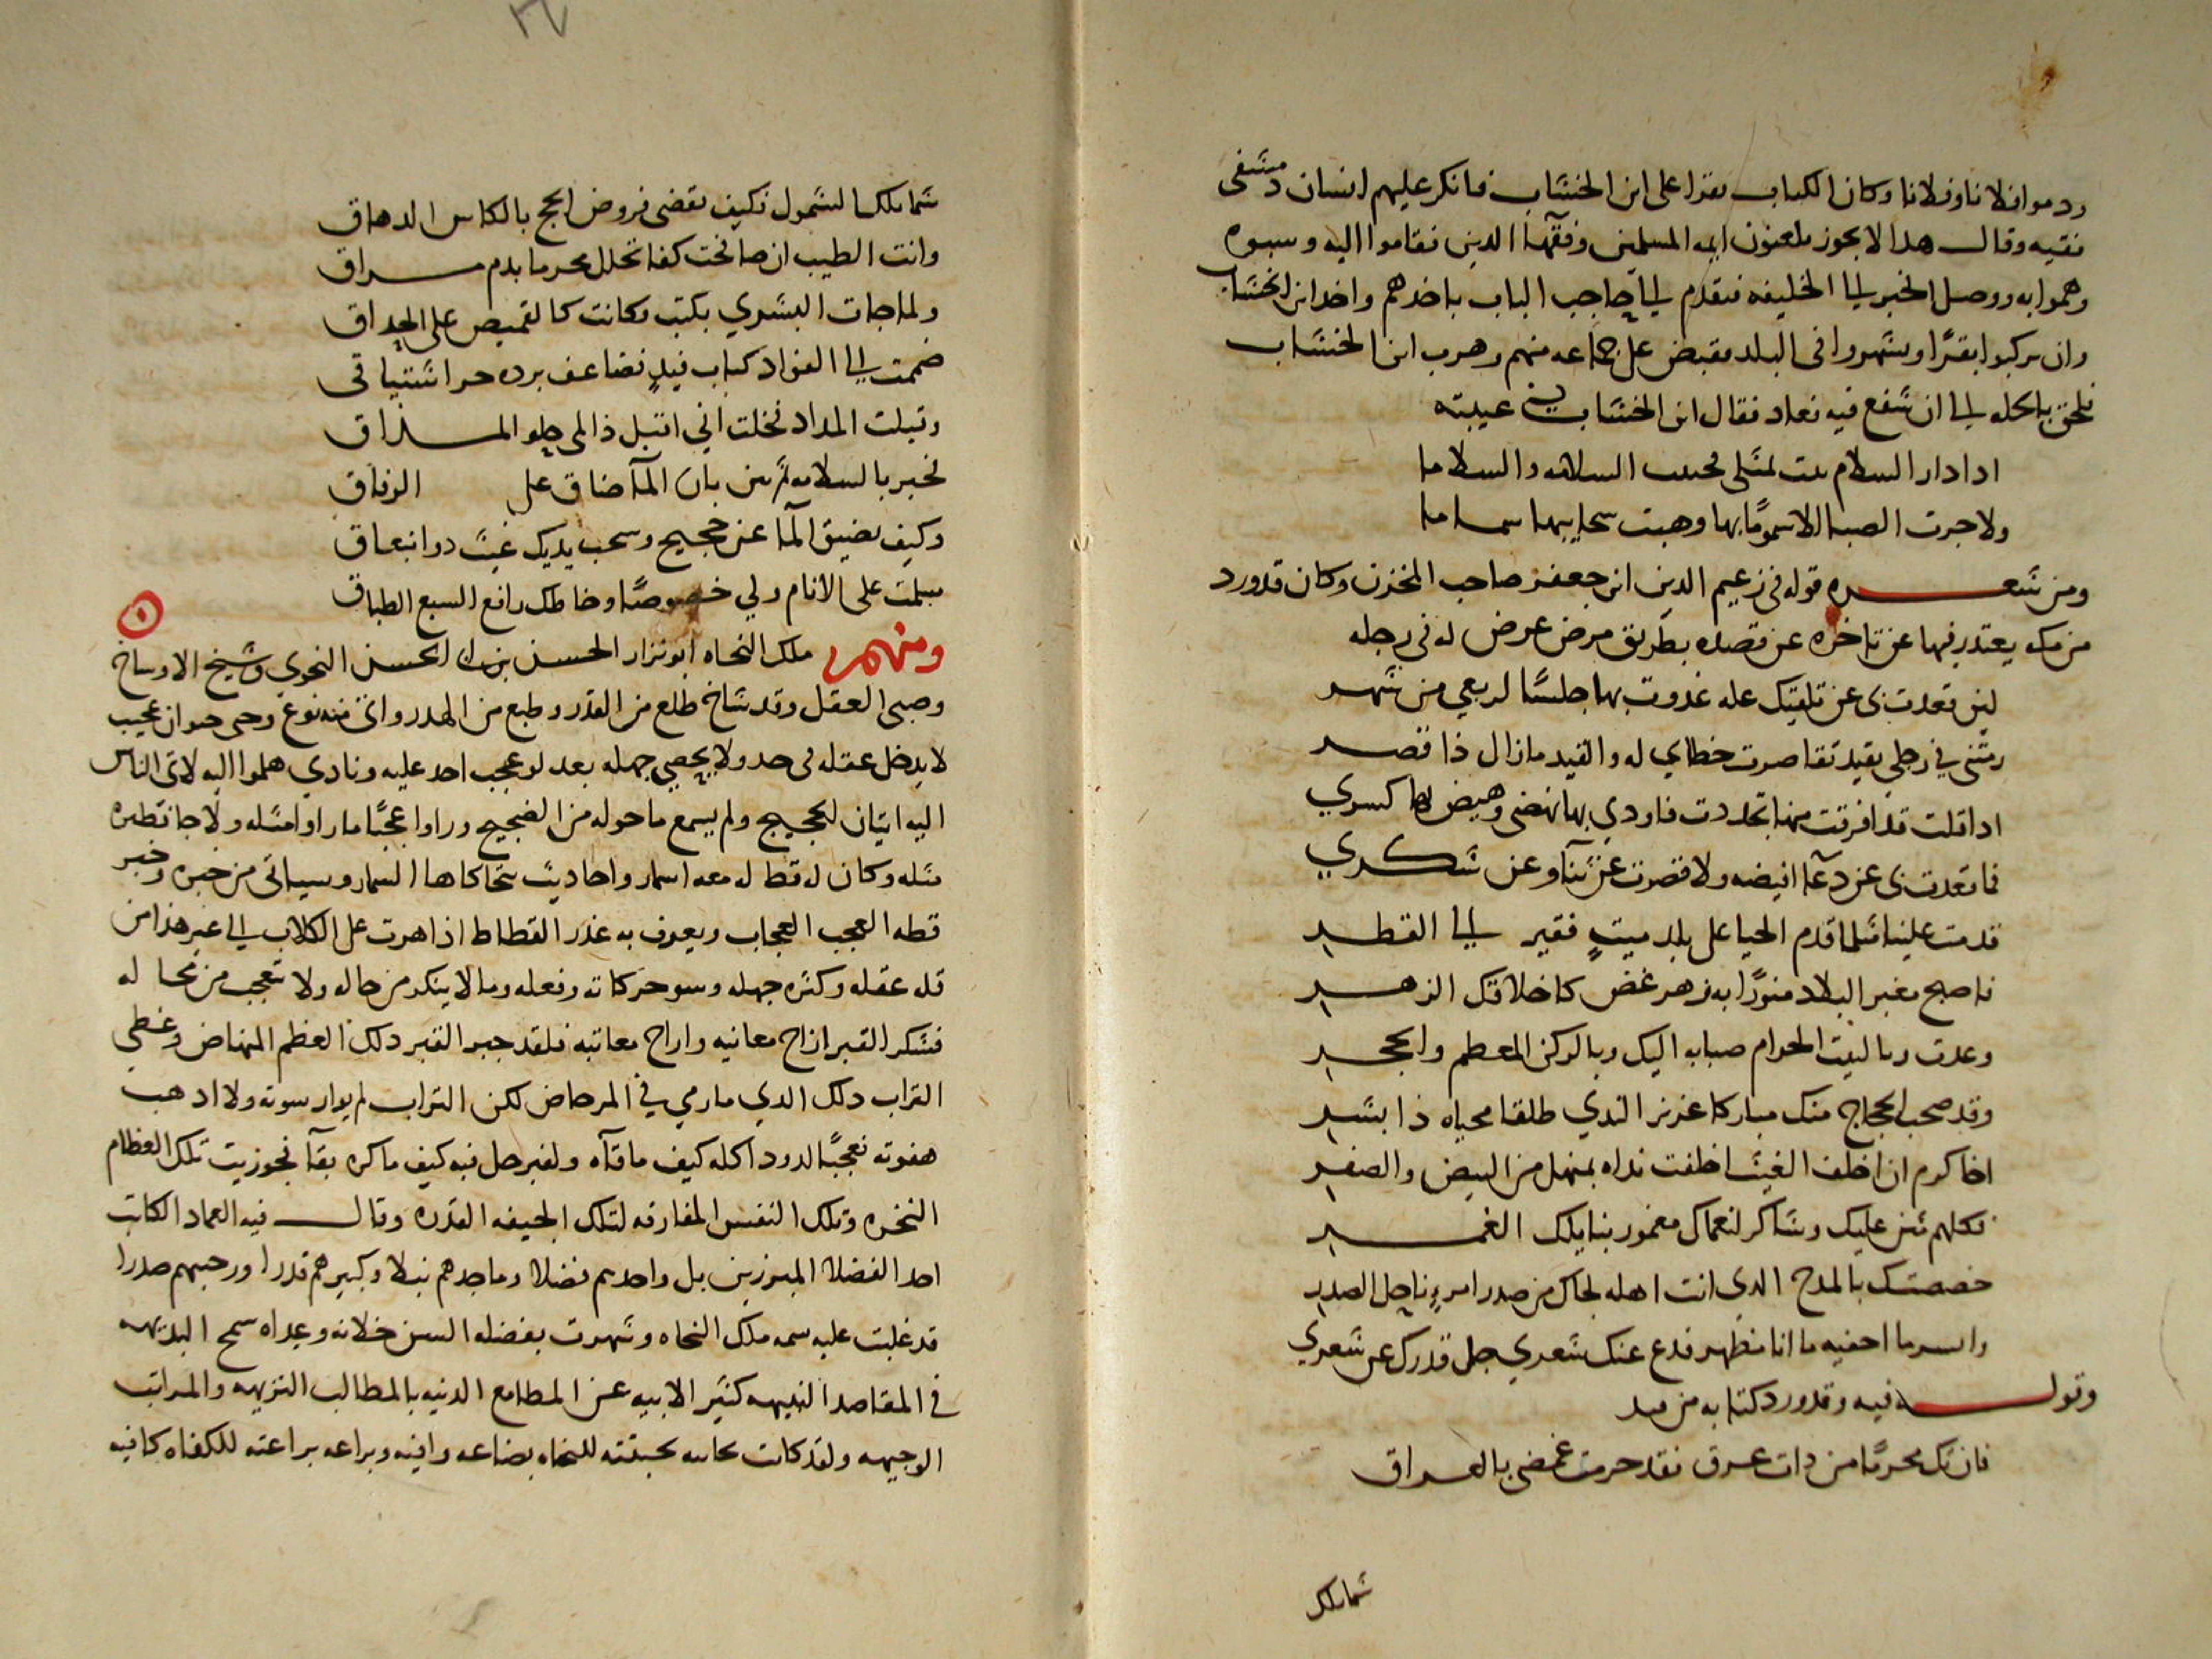 ردموا فلانا وفلانا وكان الكتاب يقرا على ابن الخشاب فانكر عليهم انسان دمشقى
فقيه وقال هذا لا يجوز تلعنون ايمه المسلمين وفقهآ الدين فقاموا اليه وسبوه
وهموا به ووصل الخبر الى الخليفه فتقدم الى حاجب الباب باخذهم واخذ ابن الخشاب
وان يركبوا بقرًا ويشهروا فى البلد فقبض على جماعه منهم وهرب ابن الخشاب
فلحق بالحله الى ان شفع فيه فعاد فقال ابن الخشاب في غيبته
ادا دار السلام نبت بمثلى فجنبت السلامه والسلاما
ولا جرت الصبا الا سمومًا بها وهبت سحايبها سماما
ومن شعره قوله فى زعيم الدين ابن جعفر صاحب المخزن وكان قد ورد
من مكه يعتدر فيها عن تاخره عن قصده بطريق مرض عرض له فى رجله
لين قعدت بى عن تلقيك عله غدوت بها حلسًا لربعي من شهر
رمتنى في رجلى بقيد تقاصرت خطاي له والقيد مازال ذا قصر
ادا قلت قد افرقت منها تجددت فاودي بها نهضى وهيض لها كسري
فما قعدت بى عن دعآ افيضه ولا قصرت عن ثنآ وعن شكري
قدمت علينا مثلما قدم الحيا على بلد ميتٍ فقير الى القطر
فاصبح مغبر البلاد منورًا به زهر غض كاخلاقك الزهر
وعدت وبالبيت الحرام صبابه اليك وبالركن المعظم والحجر
وقد صحب الحجاج منك مباركا غزير الندي طلقا محياه ذا بشر
اخا كرم ان اخلف الغيث اخلفت نداه بمنهل من البيض والصفر
فكلهم مثن عليك وشاكر لنعماك مغمور بنايلك الغمر
خصصتك بالمدح الدي انت اهله لحاك من صدر امرءٍ ناحل الصدر
وايسر ما اخفيه ما انا مظهر فدع عنك شعري جل قدرك عن شعري
وقوله فيه وقد ورد كتابه من فيد
فان تك محرمًا من دات عرق فقد حرمت غمضى بالعراق
شمايلك
شمايلك الشمول فكيف تقضى فروض الحج بالكاس الدهاق
وانت الطيب ان صافحت كفا تحلل محرما بدم مراق
ولما جات البشري بكتب وكانت كالقميص على الحداق
ضممت الى الفؤاد كتاب فيدٍ فضاعف برده حر اشتياقى
وقبلت المداد فخلت اني اقبل ذا لمى حلو المذاق
تخبر بالسلامه بان المآ ضاق على الرفاق
وكيف يضيق المآ عن حجيج وسحب يديك غيث دو انبعاق
سلمت على الانام ولي خصوصًا وحاطك رافع السبع الطباق
ومنهم ملك النحاه ابو نزار الحسن بن الحسن النحوي وشيخ الاوساخ
وصبى العقل وقد شاخ طلع من القدر وطبع من الهدر واتى منه نوع وحى حيوان عجيب
لا يدخل عقله فى حد ولا يحصي جهله بعد لو عجب احد عليه ونادي هلموا اليه لاتى الناس
اليه اتيان الحجيج ولم يسمع ما حوله من الضجيج وراوا عجبًا ما راوا مثله ولا جا نظيره
مثله وكان له قط له معه اسمار واحاديث تتحاكاها السمار وسياتى من خبره وخبر
قطه العجب العجاب ويعرف به غدر القطاط اذا هرت على الكلاب الى غير هذا من
قله عقله وكثره جهله وسو حركاته وفعله وما لا ينكر من حاله ولا تعجب من محاله
فشكر القبر ازاح معانيه واراح معاتبه فلقد جبر القبر دلك العظم المنهاض وغطى
التراب دلك الدي ما رمي في المرحاض لكن التراب لم يوار سوته ولا ادهب
هفوته فعجبًا لدود اكله كيف ما قآه ولقبر حل فيه كيف ما كره بقآه فحوزيت تلك العظام
النخره وتلك النفس المفارقه لتلك الجيفه القذره وقال فيه العماد الكاتب
احد الفضلا المبرزين بل واحدهم فضلا وماجدهم نبلا وكبيرهم قدرا ورحبهم صدرا
قد غلبت عليه سمه ملك النحاه وشهرت بفضله السن خلانه وعداه سمح البديهه
في المقاصد النبيهه كثير الابيه عن المطامع الدنيه بالمطالب النزيهه والمراتب
الوجيهه ولقد كانت نجابته للنحاه بضاعه وافيه وبراعه براعته للكفاه كافيه